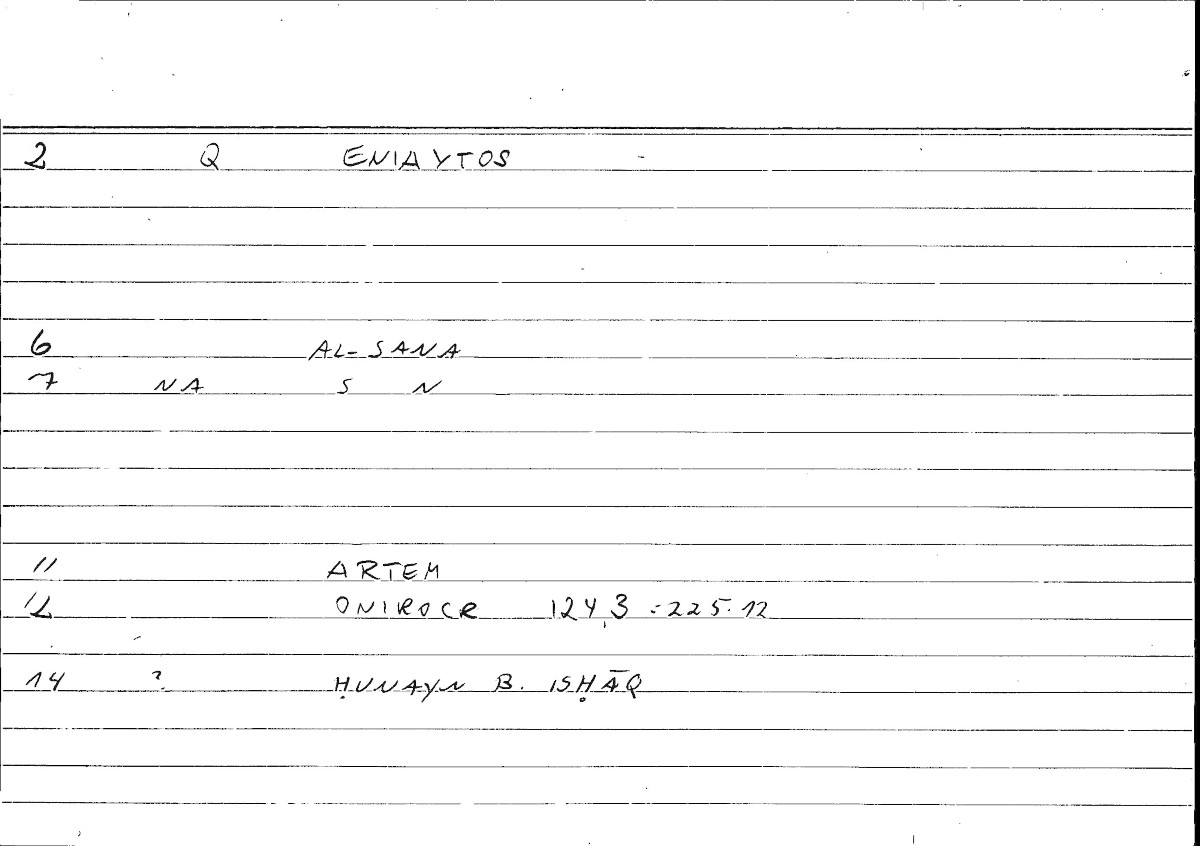 2 Q ENIAYTOS -
6 AL-SANA
7 NA S N
11 ARTEM
12 ONIROCR 124,3 = 225.12
14 ? ḤUNAYN B. ISḤĀQ